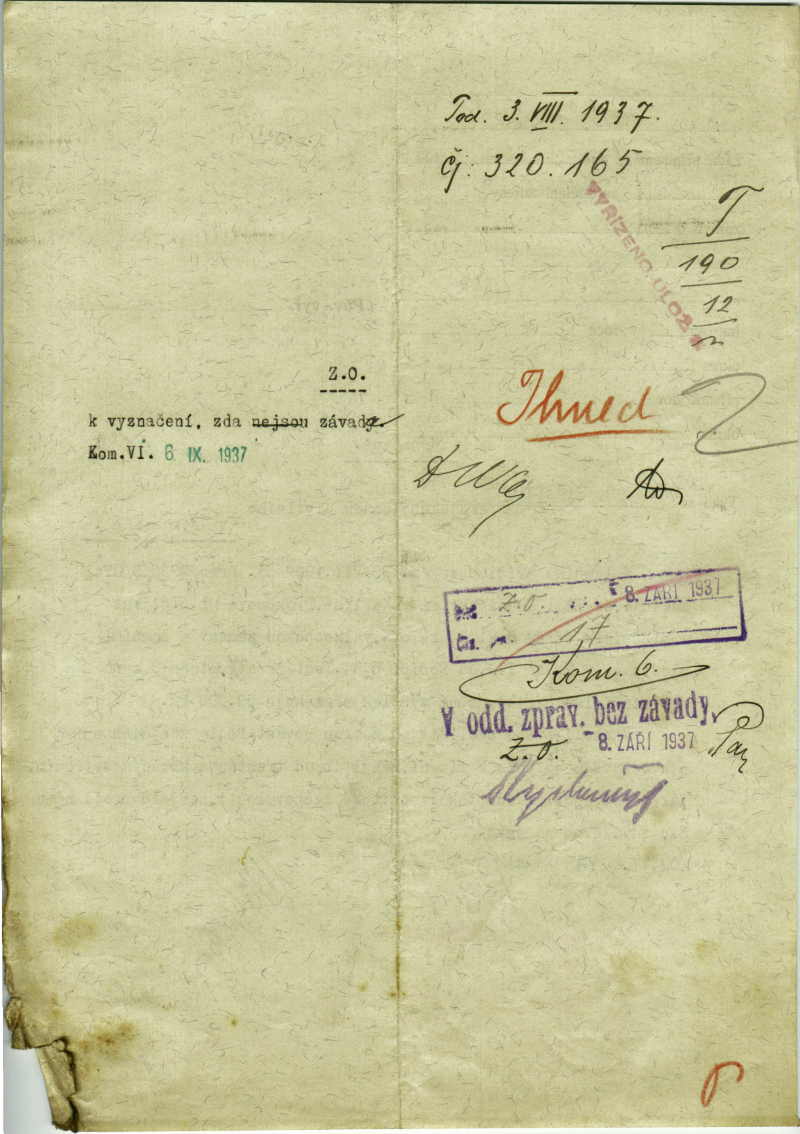 Pod. 3. VIII. 1937.
Čj: 320.165
VYŘÍZENO ULOŽ
T
190
12
Z.O.
k vyznačení, zda nejsou závady.
Kom.VI. 6 IX. 1937
Ihned
Z.O. 8. ZÁŘÍ 1937
17
Kom. 6.
V odd. zprav. bez závady,
Z.O. 8. ZÁŘÍ 1937